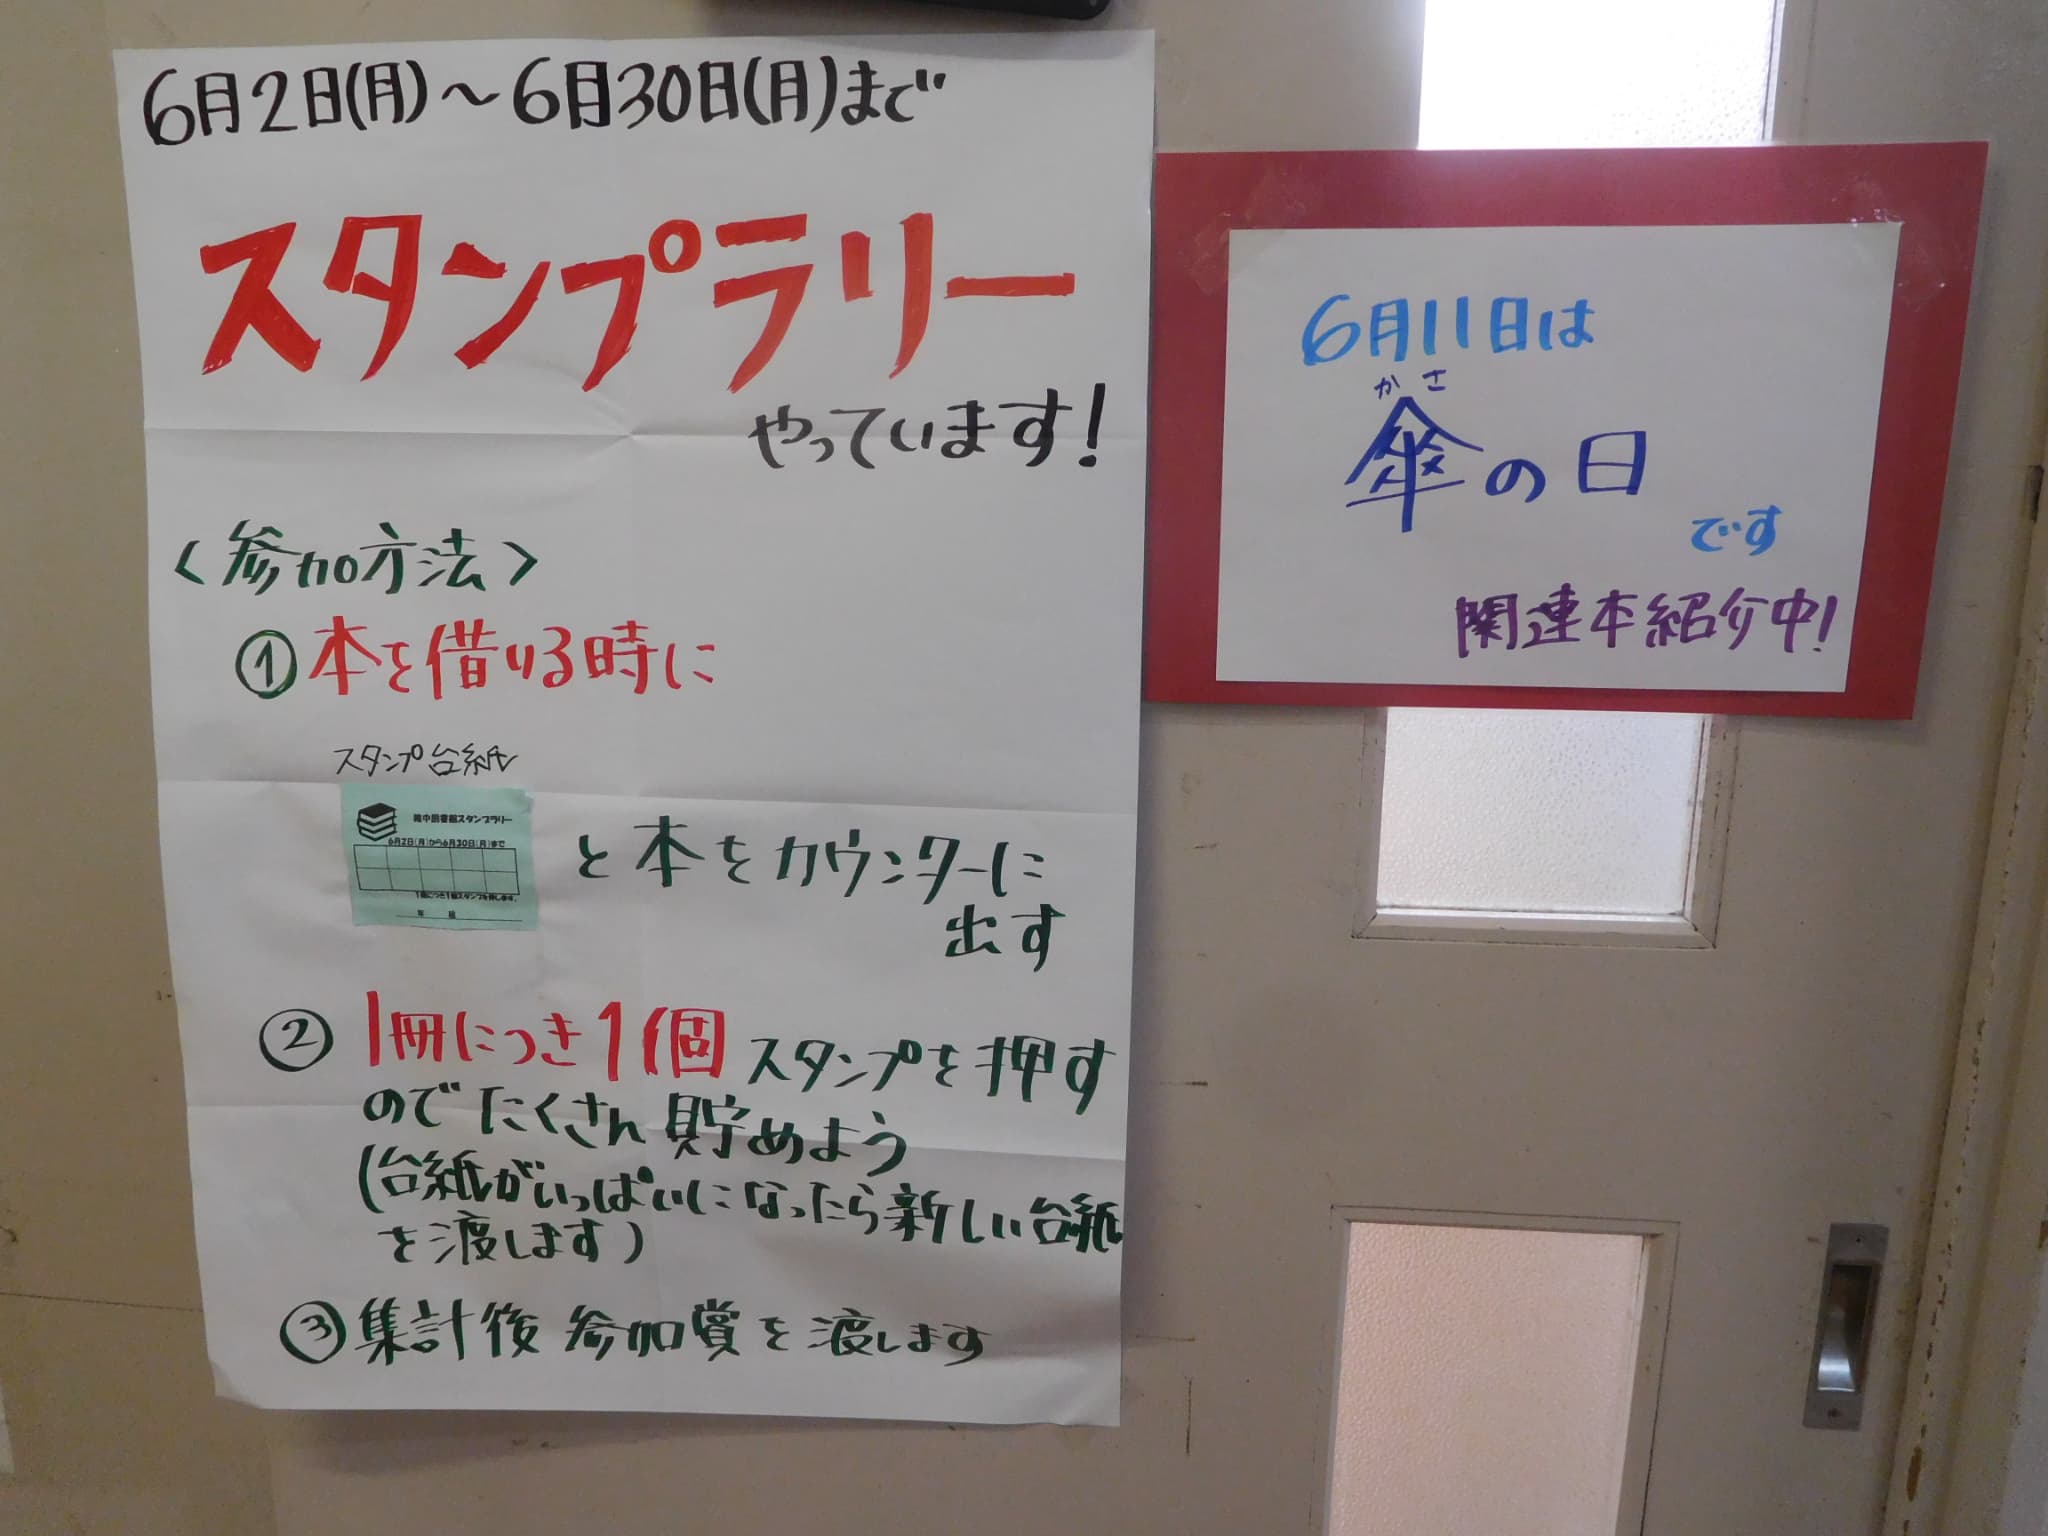 6月2日(月)～6月30日(月)まで
スタンプラリー
やっています!
<参加方法>
①本を借りる時に
スタンプ台紙
中図書館スタンプラリー
6月2日(月)から6月30日(月)まで
1冊につき1個スタンプを押します。
年 組
と本をカウンターに
出す
②1冊につき1個スタンプを押す
のでたくさん貯めよう
(台紙がいっぱいになったら新しい台紙
を渡します)
③集計後参加賞を渡します
6月11日は
かさ
傘の日
です
関連本紹介中!